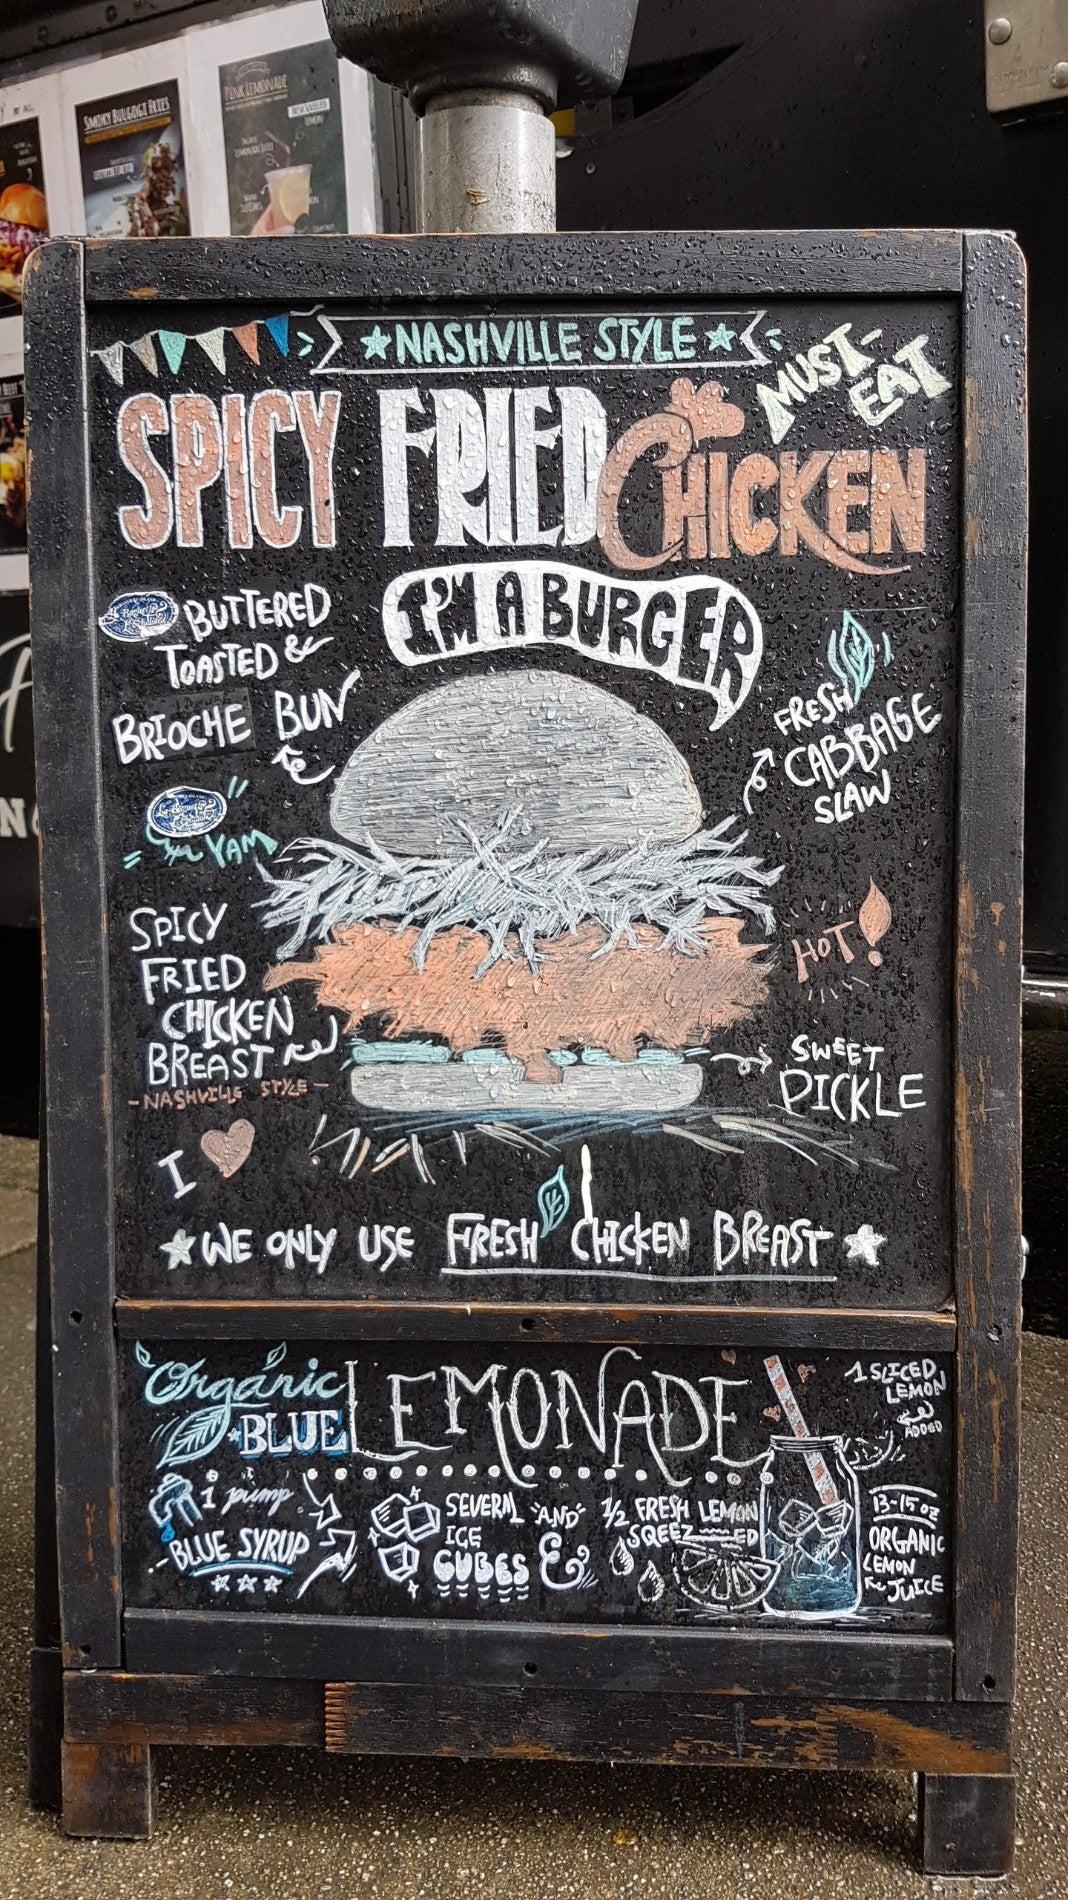 SMOKY BULGOGI FRIES
PINK LEMONADE
LEMON
★NASHVILLE STYLE★
MUST-
EAT
SPICY FRIED CHICKEN
I'M A BURGER
BUTTERED
TOASTED &
BRIOCHE BUN
FRESH
CABBAGE
SLAW
YAM
SPICY
FRIED
CHICKEN
BREAST
- NASHVILLE STYLE -
HOT!
SWEET
PICKLE
I
★WE ONLY USE FRESH CHICKEN BREAST★
Organic
BLUE LEMONADE
1 SLICED
LEMON
ADDED
1 pump
BLUE SYRUP
SEVERAL
ICE
CUBES
"AND"
&
1/2 FRESH LEMON
SQEEZED
13-15 OZ
ORGANIC
LEMON
JUICE